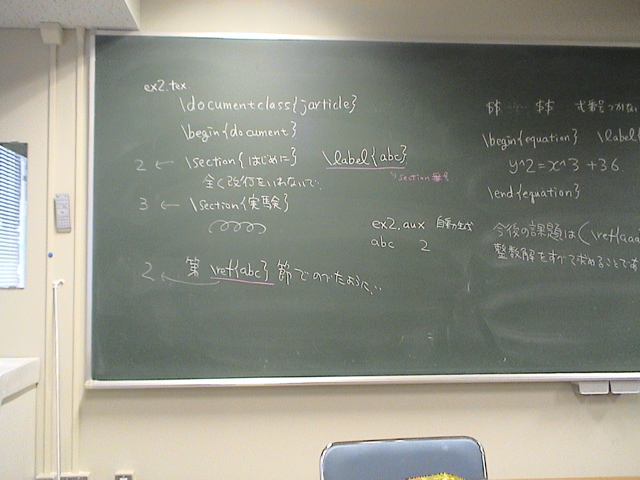 ex2.tex
\documentclass{jarticle}
\begin{document}
2 ← \section{はじめに} \label{abc}
section 番号
全く改行をいれないで、
3 ← \section{実験}
ex2.aux 自動生成
abc 2
2 ← 第 \ref{abc} 節でのべたように、
$$ ‥‥ $$ 式番号つかない
\begin{equation} \label{
y^2=x^3+36
\end{equation}
今後の課題は(\ref{aaa
整数解をすべて求めることであ